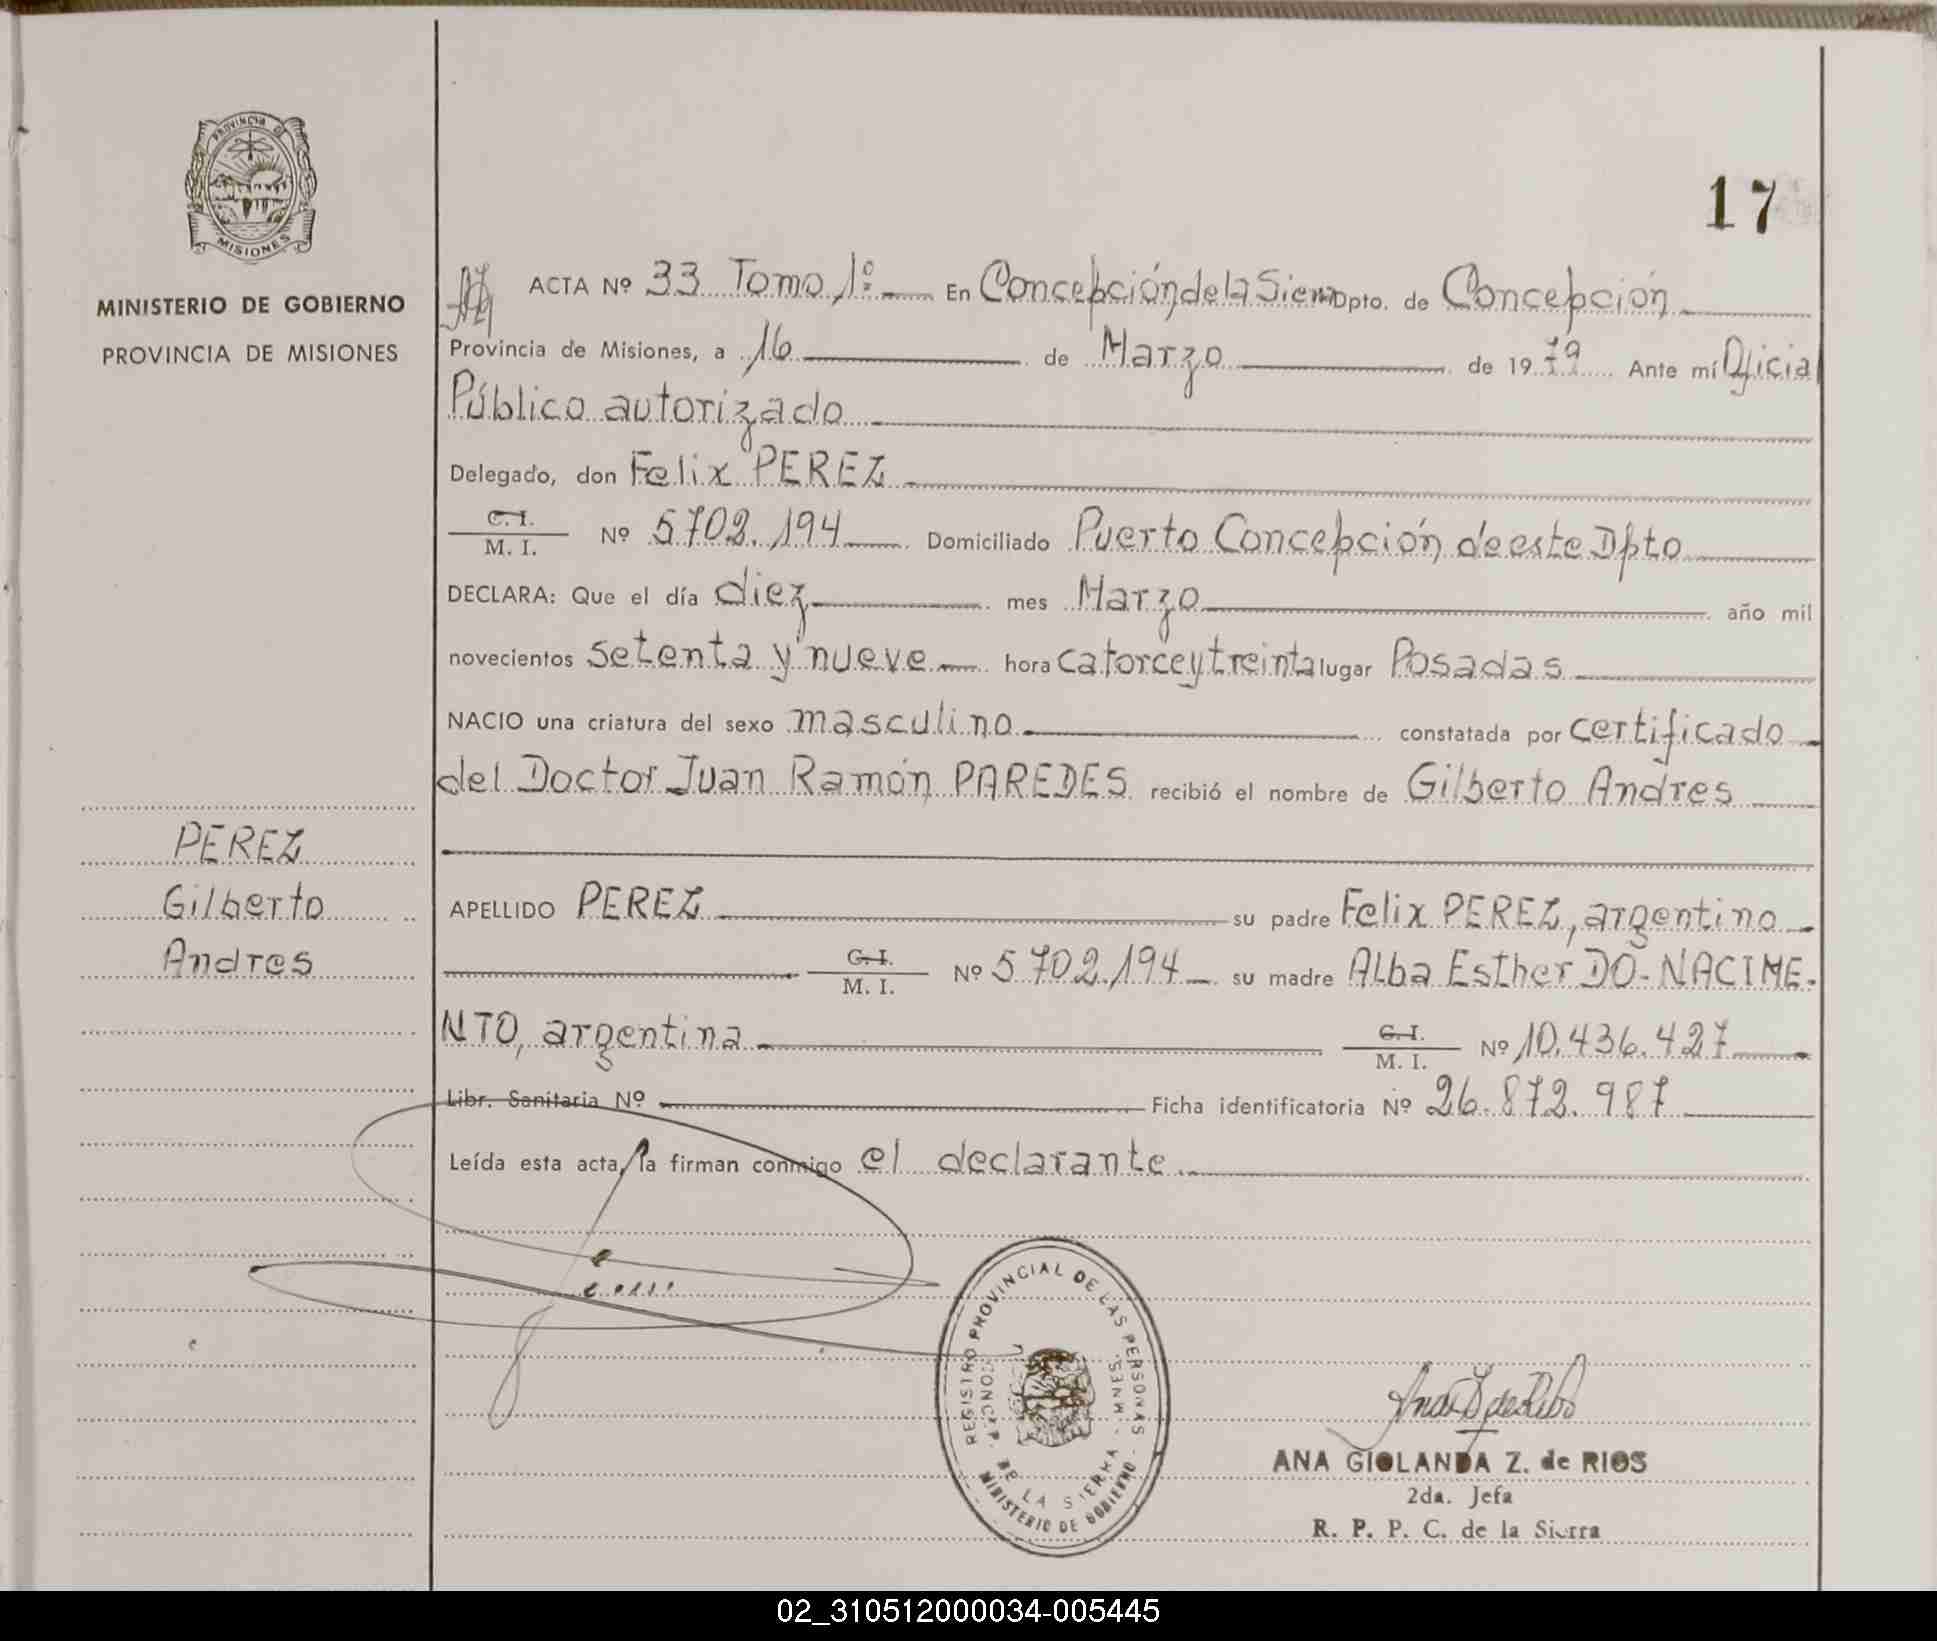 PROVINCIA DE
MISIONES
MINISTERIO DE GOBIERNO
PROVINCIA DE MISIONES
17
ACTA Nº 33 Tomo 1º En Concepción de la Sierra Dpto. de Concepción
Provincia de Misiones, a 16 de Marzo de 1979 Ante mí Oficial
Público autorizado
Delegado, don Felix PEREZ
C. I.
M. I. Nº 5702.194 Domiciliado Puerto Concepción de este Dpto
DECLARA: Que el día diez mes Marzo año mil
novecientos setenta y nueve hora catorce y treinta lugar Posadas
NACIO una criatura del sexo masculino constatada por certificado
del Doctor Juan Ramón PAREDES recibió el nombre de Gilberto Andres
PEREZ
Gilberto
Andres
APELLIDO PEREZ su padre Felix PEREZ, argentino
C. I.
M. I. Nº 5.702.194 su madre Alba Esther DO-NACIME-
NTO, argentina C. I.
M. I. Nº 10.436.427
Libr. Sanitaria Nº Ficha identificatoria Nº 26.872.987
Leída esta acta, la firman conmigo el declarante
REGISTRO PROVINCIAL DE LAS PERSONAS - MINISTERIO DE GOBIERNO
CONC. P. DE LA SIERRA - MNES.
ANA GIOLANDA Z. de RIOS
2da. Jefa
R. P. P. C. de la Sierra
02_310512000034-005445